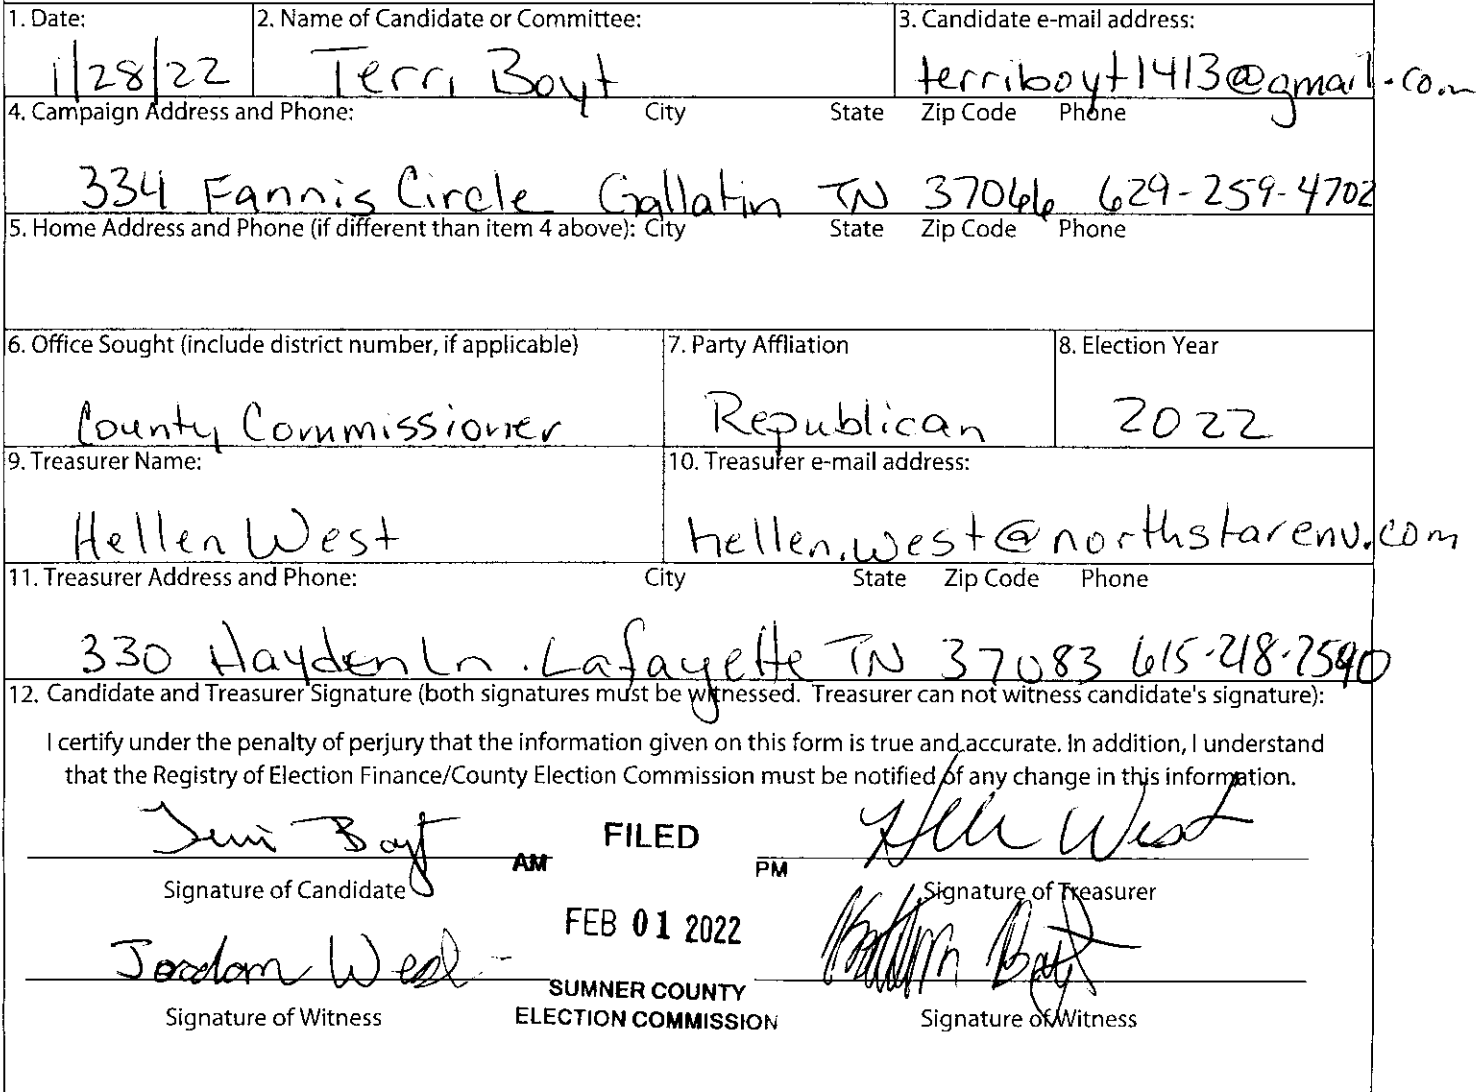 1. Date: 2. Name of Candidate or Committee: 3. Candidate e-mail address:
1/28/22 Terri Boyt terriboyt1413@gmail.com
4. Campaign Address and Phone: City State Zip Code Phone
334 Fannis Circle Gallatin TN 37066 629-259-4702
5. Home Address and Phone (if different than item 4 above): City State Zip Code Phone
6. Office Sought (include district number, if applicable) 7. Party Affliation 8. Election Year
County Commissioner Republican 2022
9. Treasurer Name: 10. Treasurer e-mail address:
Hellen West hellen.west@northstarenv.com
11. Treasurer Address and Phone: City State Zip Code Phone
330 Hayden Ln. Lafayette TN 37083 615-218-2590
12. Candidate and Treasurer Signature (both signatures must be witnessed. Treasurer can not witness candidate's signature):
I certify under the penalty of perjury that the information given on this form is true and accurate. In addition, I understand
that the Registry of Election Finance/County Election Commission must be notified of any change in this information.
Terri Boyt FILED West
AM PM
Signature of Candidate Signature of Treasurer
FEB 01 2022
Jordan West Boyt
SUMNER COUNTY
Signature of Witness ELECTION COMMISSION Signature of Witness